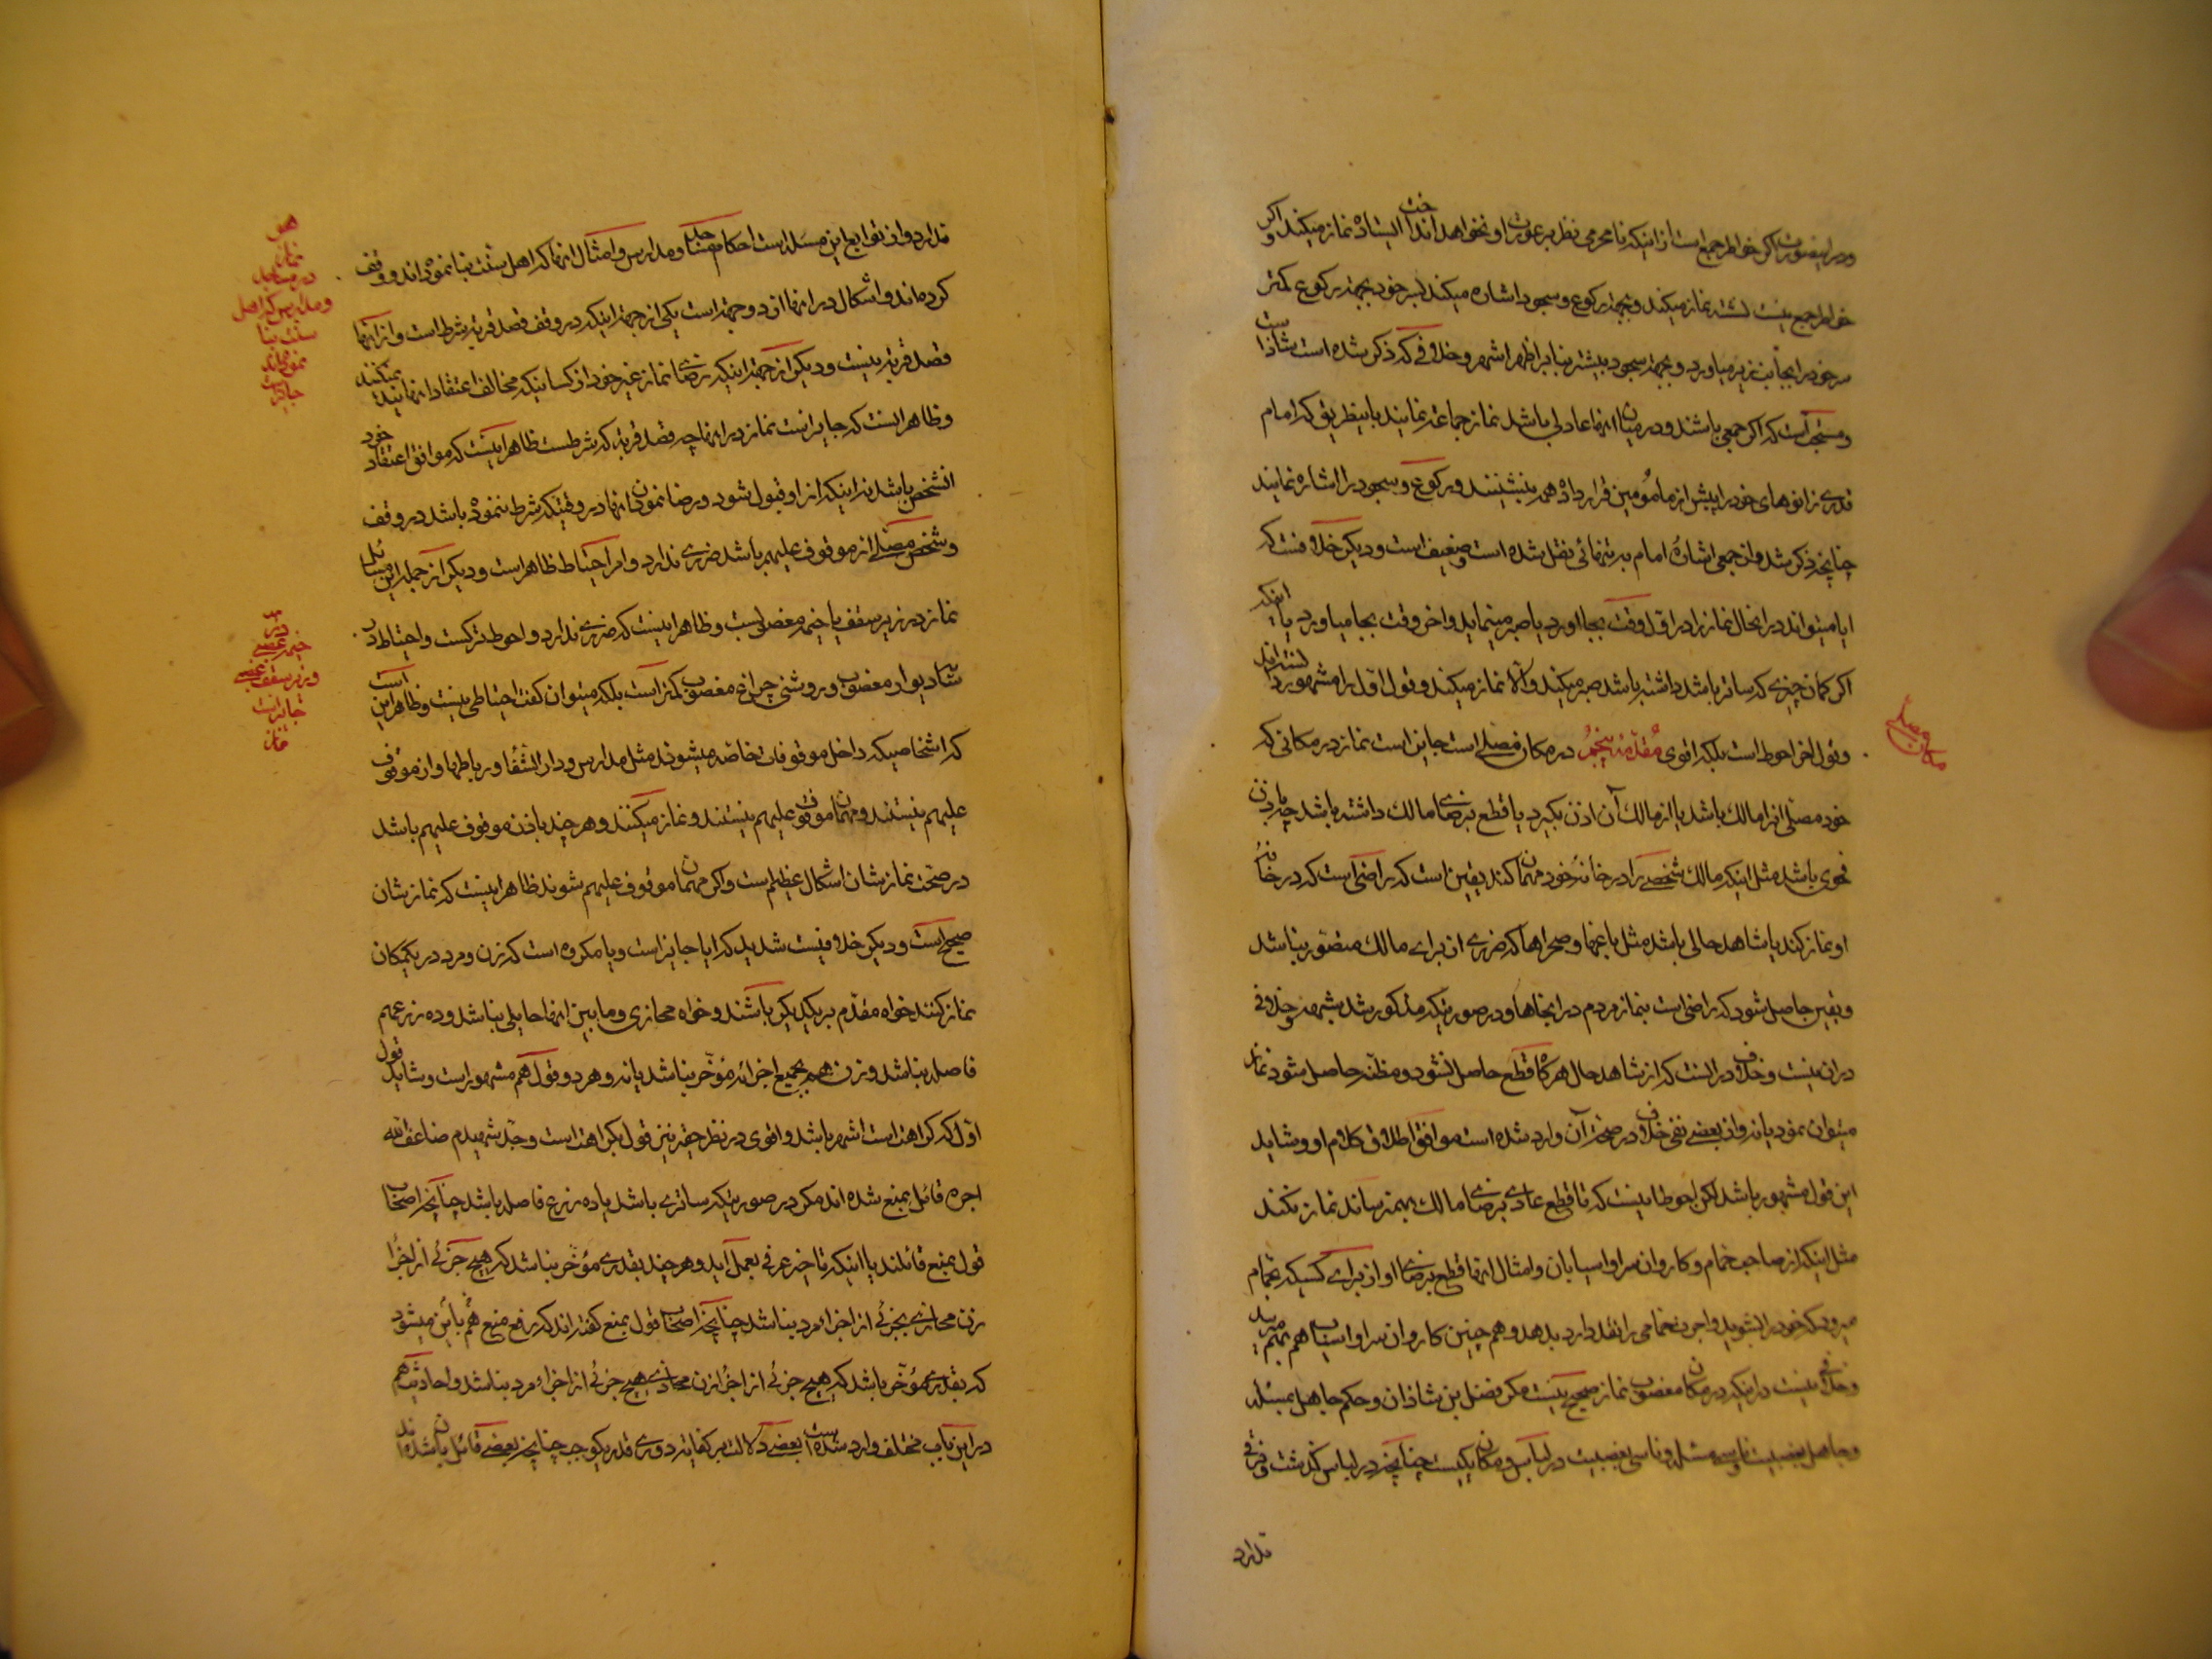 ودر اینصورت اکر خواطر جمع است از اینکه نا محرمی نظر بر عورت او نخواهد انداخت ایستاده نماز میکند و اکر
خواطر جمع نیست نشسته نماز میکند و بجهة رکوع و سجود اشاره میکند بسر خود بجهة رکوع کمتر
سر خود را بجانب زیر میاورد و بجهة سجود بیشتر بنا بر اظهر اشهر و خلافی که ذکر شده است شاذ است
و مستحب است که اکر جمعی باشند و در میان انها عادلی باشد نماز جماعة نمایند باینطریق که امام
قدری زانوهای خود را پیش از مامومین قرار داده همه بنشینند و رکوع و سجود را اشاره نمایند
چنانچه ذکر شد و از جمعی اشارهٔ امام به تنهائی نقل شده است و ضعیف است و دیکر خلافست که
ایا میتواند در اینحال نماز را در اول وقت بجا اورد یا صبر مینماید و اخر وقت بجا میاورد یا اینکه
اکر کمان چیزی که ساتر باشد داشته باشد صبر میکند و الا نماز میکند و قول اول را مشهور دانسته اند
و قول اخر احوط است بلکه اقوی مقدمه پنجم در مکان مصلی است جایز است نماز در مکانی که
خود مصلی انرا مالک باشد یا از مالک آن اذن بکیرد یا قطع برضای مالک داشته باشد چه باذن
فحوی باشد مثل اینکه مالک شخصی را در خانهٔ خود مهمان کند یقین است که راضی است که در خانهٔ
او نماز کند یا شاهد حالی باشد مثل باغها و صحراها که ضرری از برای مالک متصور نباشد
و یقین حاصل شود که راضی است بنماز مردم در اینجاها و در صورتیکه مذکور شد شبهه و خلافی
در ان نیست و خلاف در انست که از شاهد حال هر کاه قطع حاصل نشود و مظنه حاصل شود نماز
میتوان نمود یا نه و از بعضی نفی خلاف در صحة آن وارد شده است موافق اطلاق کلام او و شاید
این قول مشهور باشد لکن احوط اینست که تا قطع عادی برضای مالک بهم نرساند نماز نکند
مثل اینکه از صاحب حمام و کاروان سرا و اسیابان و امثال انها قطع برضای او از برای کسیکه بحمام
میرود که خود را بشوید و اجرت حمامی را نقد دارد بدهد و هم چنین کاروان سرا و اسیاب هم بهم میرسد
و خلافی نیست در اینکه در مکان مغصوب نماز صحیح نیست مکر فضل بن شاذان و حکم جاهل بمسئله
و جاهل بغصبیت و ناسی مسئله و ناسی بغصبیت در لباس و مکان یکیست چنانچه در لباس کذشت و فرقی
ندارد
مکان مصلی
ندارد و از توابع این مسئله است احکام مساجد و مدارس و امثال انها که اهل سنت بنا نموده اند و وقف
کرده اند و اشکال در انها از دو جهة است یکی از جهة اینکه در وقف قصد قربة شرط است و از انها
قصد قربة نیست و دیکر از جهة اینکه رضا بنماز غیر خود از کسانیکه مخالف اعتقاد انهایند نمیکنند
و ظاهر انست که جایز است نماز در انها چه قصد قربة که شرطست ظاهر اینست که موافق اعتقاد خود
انشخص باشد نه اینکه از او قبول شود و رضا نمودن انها در وقتیکه شرط ننموده باشد در وقف
و شخص مصلی از موقوف علیهم باشد ضرری ندارد و امر احتیاط ظاهر است و دیکر از جمله این مسائل
نماز در زیر سقف یا خیمهٔ مغصوبست و ظاهر اینست که ضرری ندارد و احوط ترکست و احتیاط در
سایهٔ دیوار مغصوب و روشنی چراغ مغصوب کمتر است بلکه میتوان کفت احتیاطی نیست و ظاهر این است
که اشخاصیکه داخل موقوفات خاصه میشوند مثل مدارس و دار الشفا و رباطها و از موقوف
علیهم نیستند و مهمان موقوف علیهم نیستند و نماز میکنند و هر چند باذن موقوف علیهم باشد
در صحت نمازشان اشکال عظیم است و اکر مهمان موقوف علیهم شوند ظاهر اینست که نمازشان
صحیح است و دیکر خلافیست شدید که ایا جایز است و یا مکروه است که زن و مرد در یکمکان
نماز کنند خواه مقدم بر یکدیکر باشند و خواه محاذی و ما بین انها حایلی نباشد و ده زرع هم
فاصله نباشد و زن هم بجمیع اجزاء مؤخر نباشد یا نه و هر دو قول هم مشهور است و شاید قول
اول که کراهت است اشهر باشد و اقوی در نظر حقیر نیز قول بکراهت است و جد شهیدم ضاعف الله
اجره قائل بمنع شده اند مکر در صورتیکه ساتری باشد یا ده زرع فاصله باشد چنانچه اصحاب
قول بمنع قائلند یا اینکه تاخیر عرفی بعمل آید و هر چند بقدری مؤخر نباشد که هیچ جزئی از اجزاء
زن محاذی بجزئی از اجزاء مرد نباشد چنانچه اصحاب قول بمنع کفته اند که رفع منع هم باین میشود
که بقدری مؤخر باشد که هیچ جزئی از اجزاء زن محاذی هیچ جزئی از اجزاء مرد نباشد و احادیث هم
در این باب مختلف وارد شده است بعضی دلالت بر کفایة دوری قدر یکوجب چنانچه بعضی قائل بان شده اند
نماز
در مساجد
و مدارس که اهل
سنت بنا
نموده اند
جایز است
در
خیمهٔ غصبی
و زیر سقف غصبی
جایز است
نماز